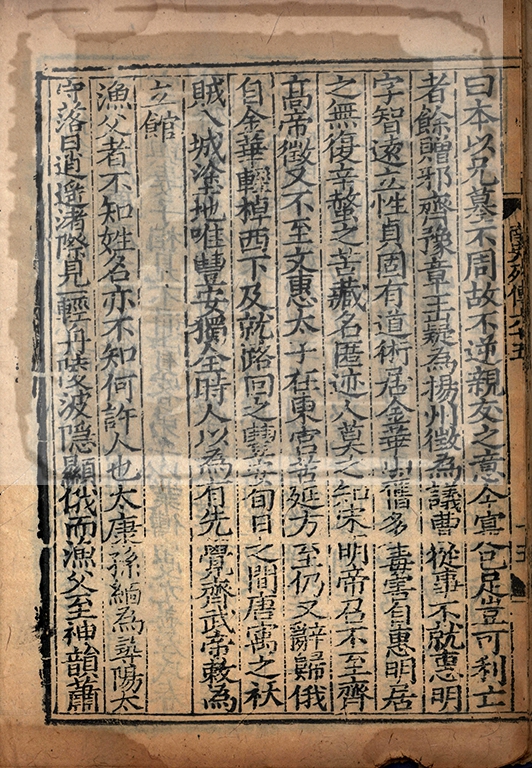 曰本以兄墓不周故不逆親友之意今實已足豈可利亡
者餘贈邪齊豫章王嶷為揚州徵為議曹從事不就惠明
字智遠立性貞固有道術居金華山舊多毒害自惠明居
之無復辛螫之苦藏名匿迹人莫之知宋明帝召不至齊
高帝徵又不至文惠太子在東宮苦延方至仍又辭歸俄
自金華輕棹西下及就路回之豐安旬日之間唐㝢之祅
賊入城塗地唯豐安獨全時人以為有先覺齊武帝敕為
立館
漁父者不知姓名亦不知何許人也太康孫緬為尋陽太
守落日逍遥渚際見輕舟陵波隱顯俄而漁父至神韻蕭